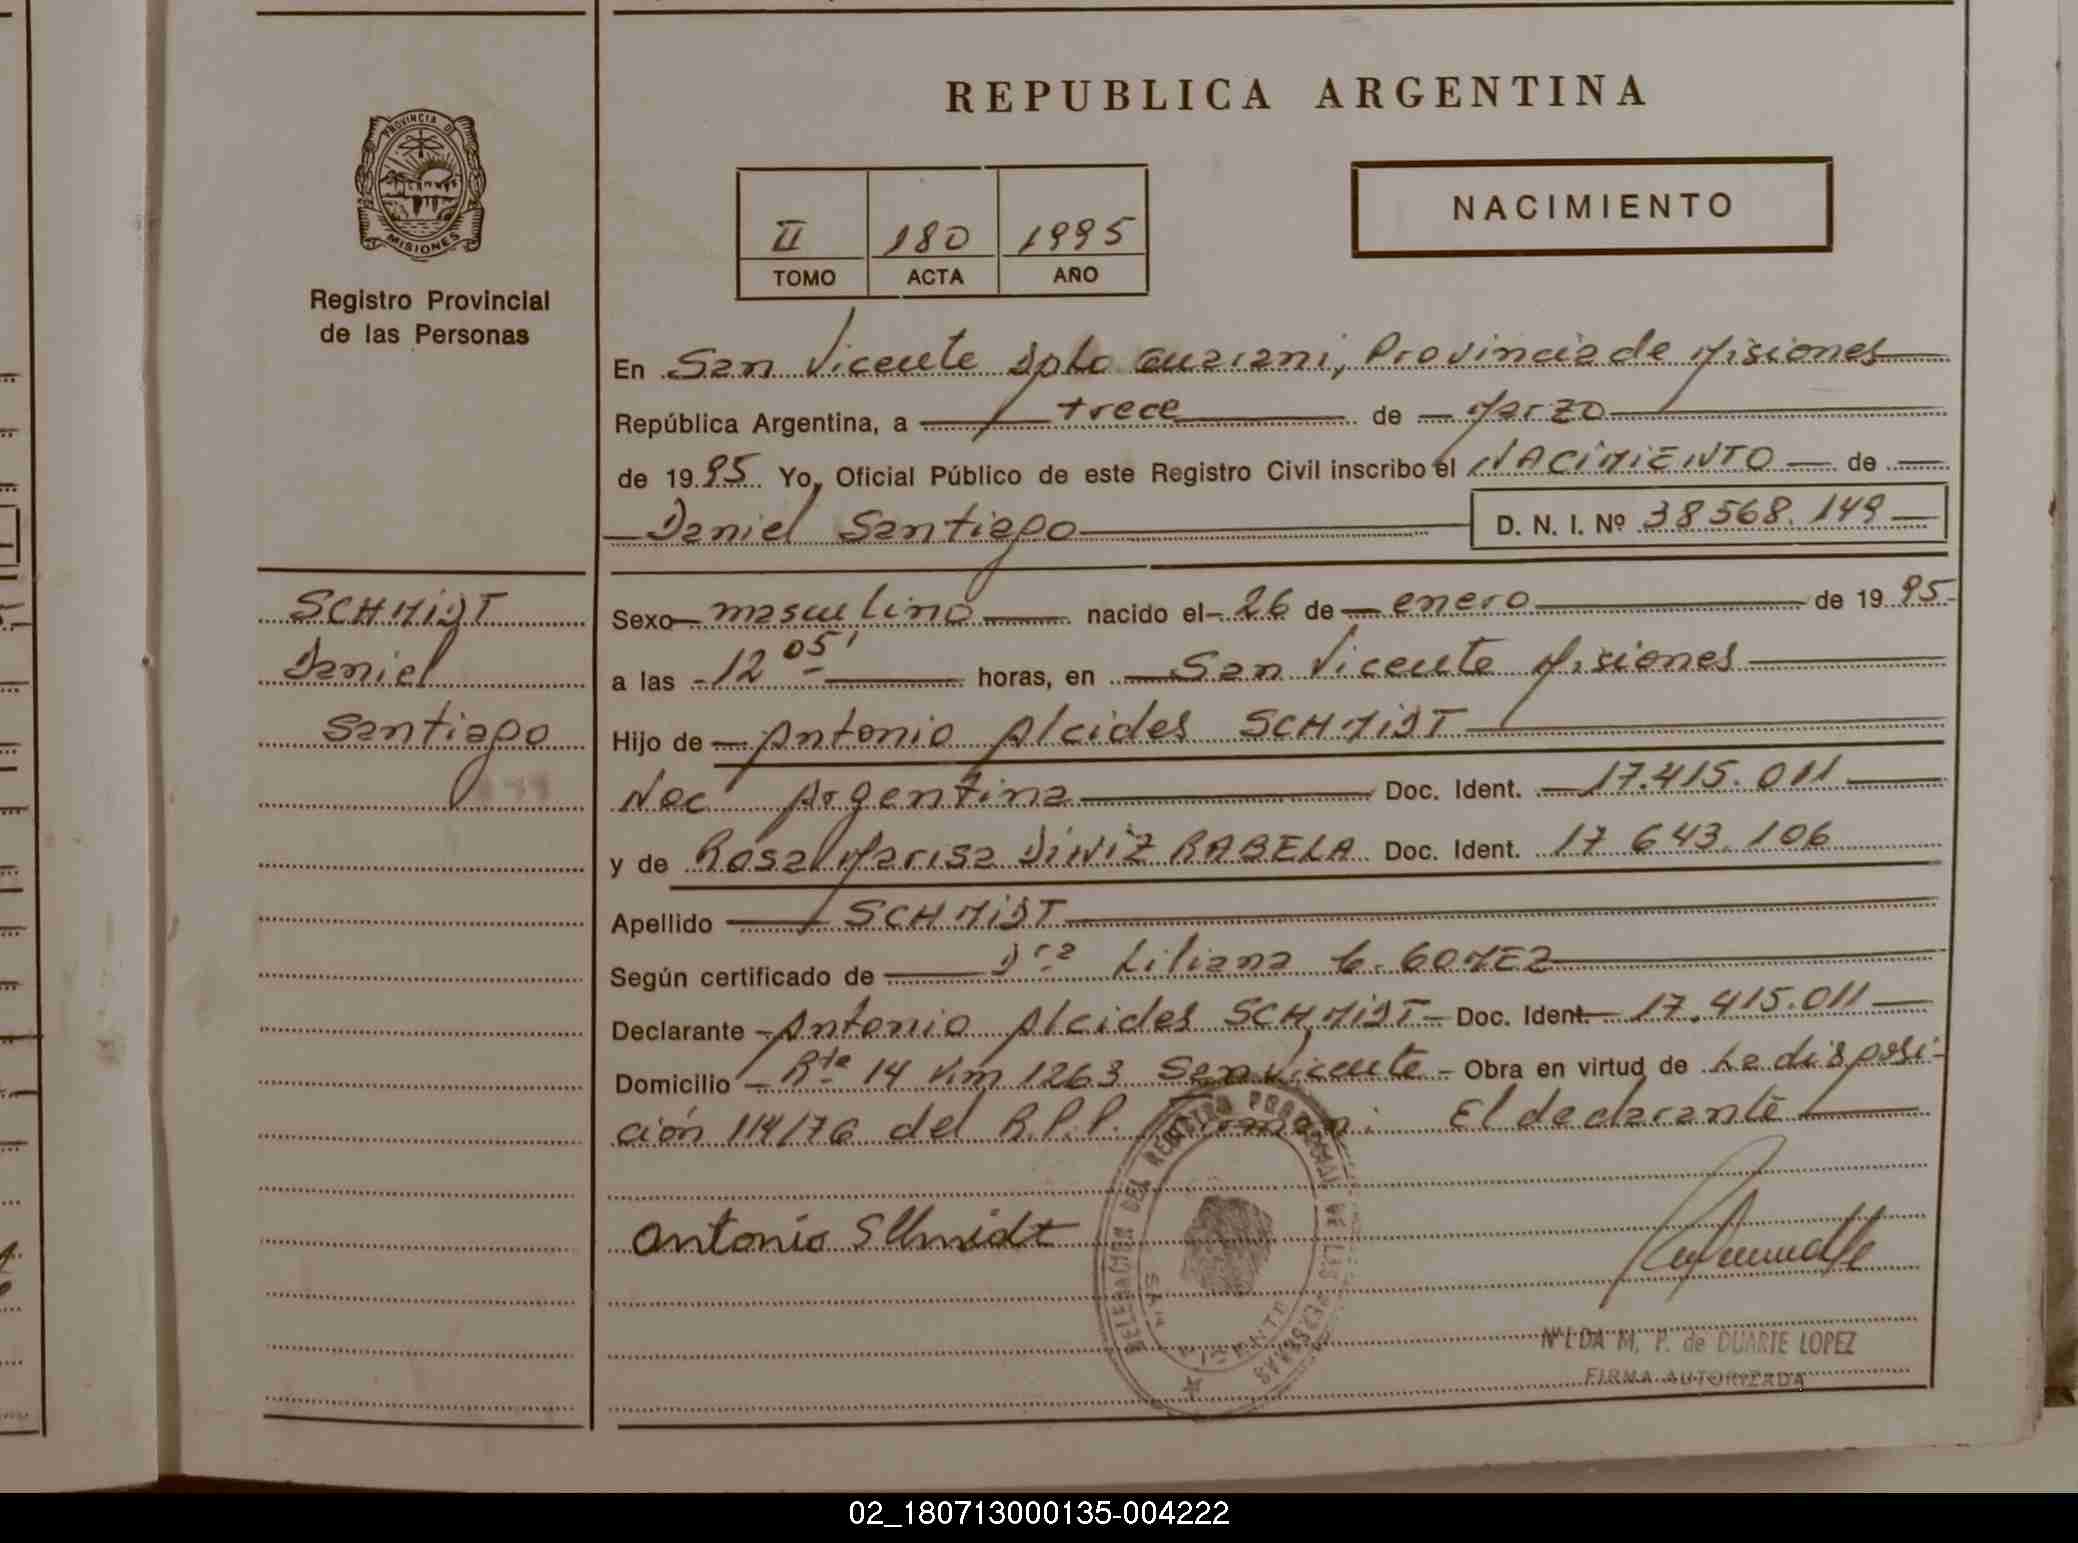 REPUBLICA ARGENTINA
PROVINCIA DE
MISIONES
Registro Provincial
de las Personas
II 180 1995
TOMO ACTA AÑO
NACIMIENTO
En San Vicente Dpto Guarani, Provincia de Misiones
República Argentina, a trece de Marzo
de 1995 Yo, Oficial Público de este Registro Civil inscribo el NACIMIENTO de
Daniel Santiago D. N. I. Nº 38568.149
SCHMIDT
Daniel
Santiago
Sexo masculino nacido el 26 de enero de 1995
a las 12 05' horas, en San Vicente Misiones
Hijo de Antonio Alcides SCHMIDT
Nac Argentina Doc. Ident. 17.415.011
y de Rosa Marisa DINIZ RABELA Doc. Ident. 17 643.106
Apellido SCHMIDT
Según certificado de Dra Liliana G. GOMEZ
Declarante Antonio Alcides SCHMIDT Doc. Ident. 17.415.011
Domicilio Rta 14 Km 1263 San Vicente Obra en virtud de La disposi-
ción 114/76 del R.P.P. Firman: El declarante
Antonio SChmidt
DELEGACION DEL REGISTRO PROVINCIAL DE LAS PERSONAS
SAN VICENTE
NILDA M. P. de DUARTE LOPEZ
FIRMA AUTORIZADA
02_180713000135-004222